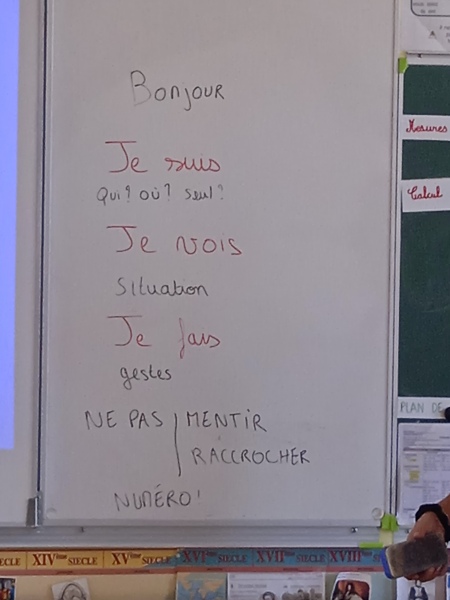 Bonjour
Je suis
Qui? où? seul?
Je vois
situation
Je fais
gestes
NE PAS MENTIR
RACCROCHER
NUMÉRO!
Mesures
Calcul
PLAN DE
XIVème SIECLE
XVème SIECLE
XVIème SIECLE
XVIIème SIECLE
XVIIIème